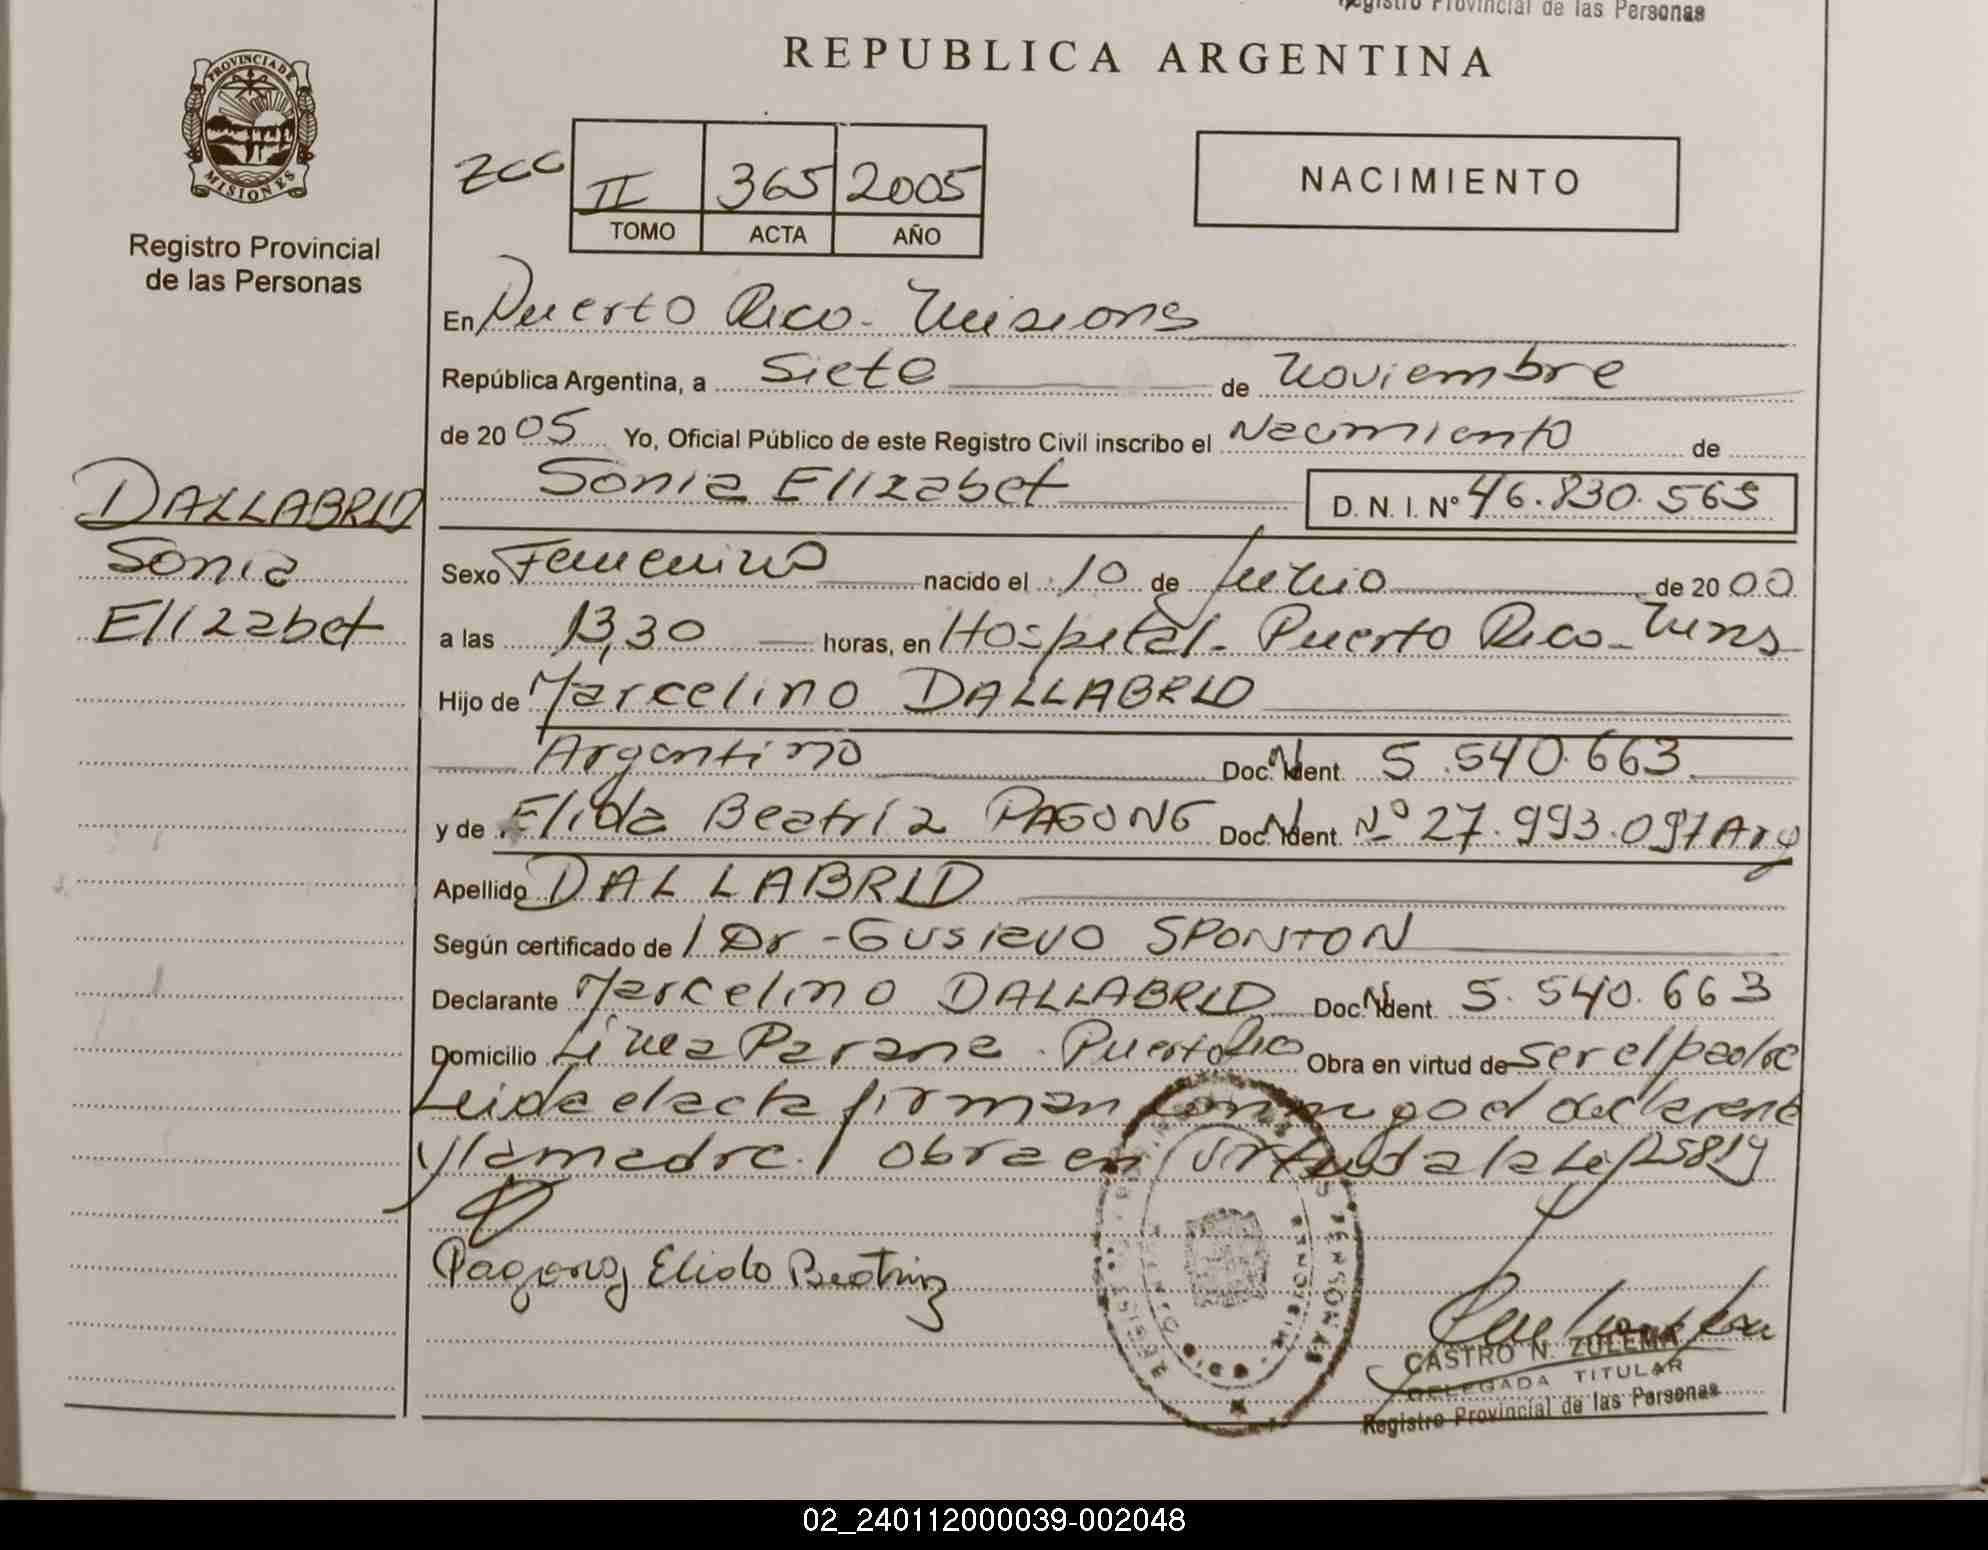 Registro Provincial de las Personas
REPUBLICA ARGENTINA
PROVINCIA DE
MISIONES
Registro Provincial
de las Personas
II 365 2005
TOMO ACTA AÑO
NACIMIENTO
En Puerto Rico - Misiones
República Argentina, a Siete de Noviembre
de 20 05 Yo, Oficial Público de este Registro Civil inscribo el Nacimiento de
Sonia Elizabet D. N. I. Nº 46.830.563
DALLABRID
Sonia
Elizabet
Sexo Femenino nacido el 10 de Julio de 20 00
a las 13,30 horas, en Hospital - Puerto Rico - Mnes
Hijo de Marcelino DALLABRID
Argentino Doc. Ident. 5.540.663
y de Elida Beatriz PAGONG Doc. Ident. Nº 27.993.097 Arg
Apellido DALLABRID
Según certificado de / Dr - Gustavo SPONTON
Declarante Marcelino DALLABRID Doc. Ident. 5.540.663
Domicilio Linea Parana - Puerto Rico Obra en virtud de Ser el padre
Leida el acta firman conmigo el declarante
y la madre / obra en virtud a la Ley 25819
Pagong Elida Beatriz
CASTRO N. ZULEMA
DELEGADA TITULAR
Registro Provincial de las Personas
02_240112000039-002048